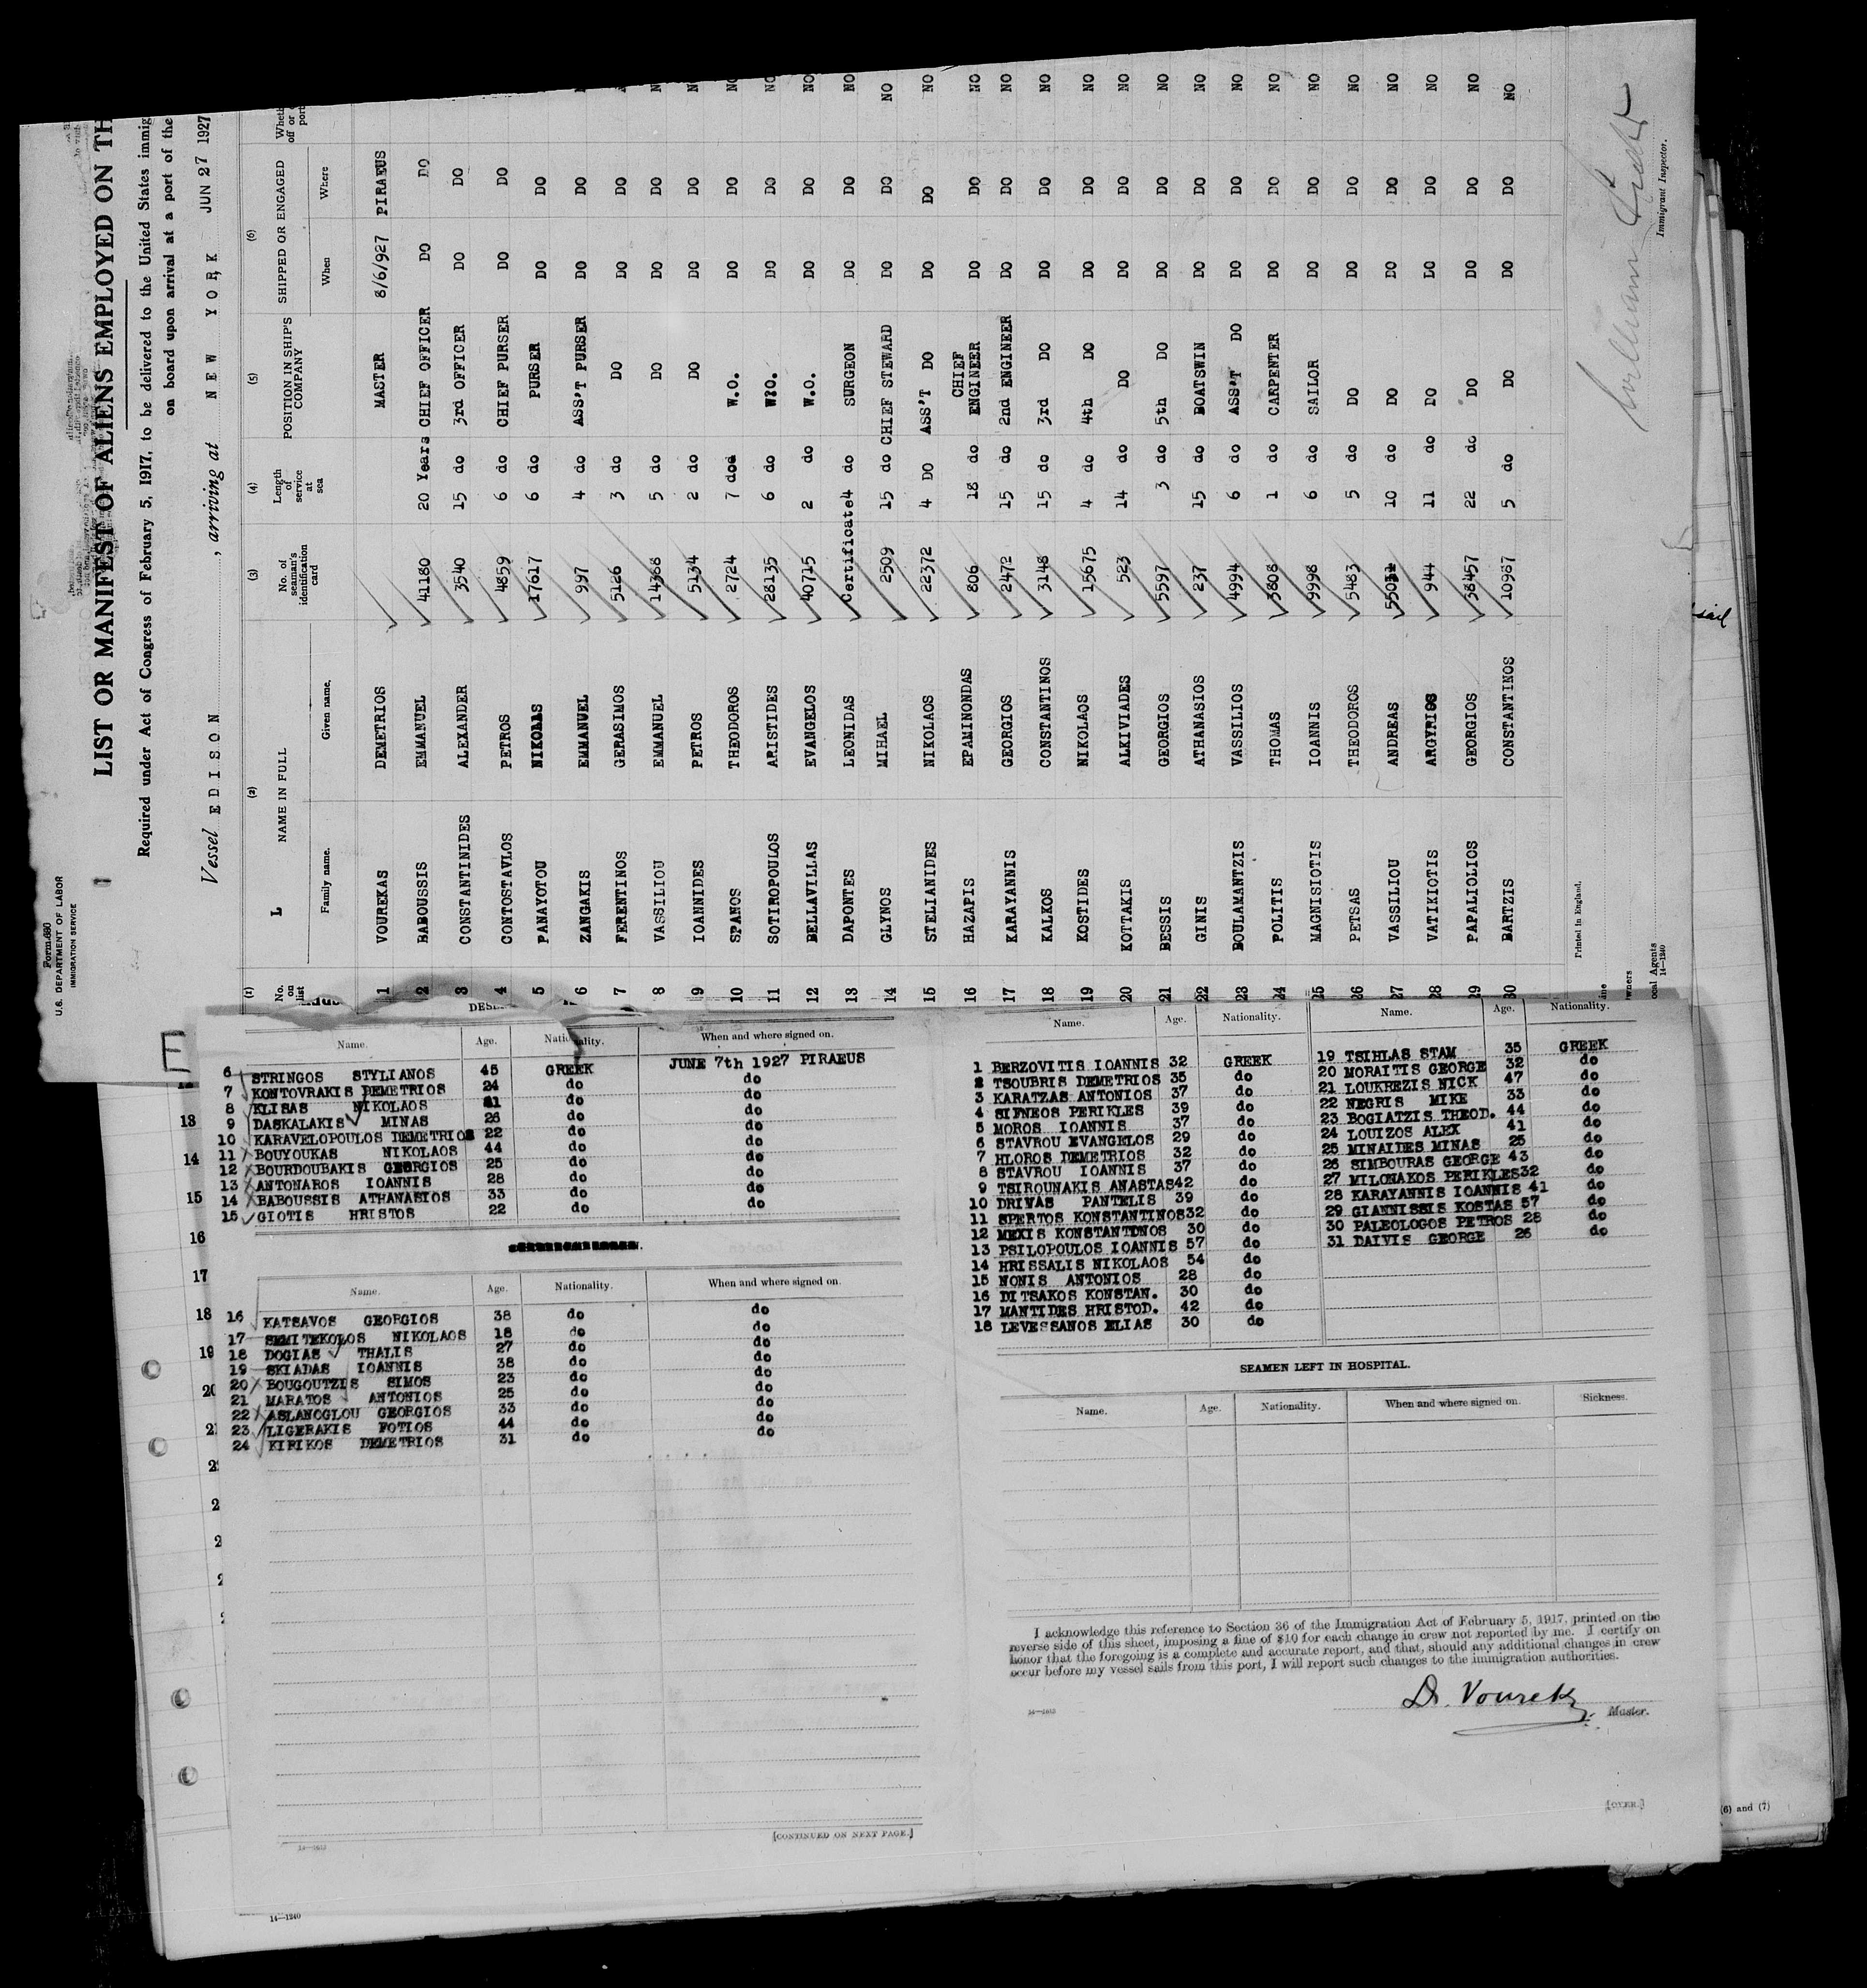 Form 680
U.S. DEPARTMENT OF LABOR
IMMIGRATION SERVICE
LIST OR MANIFEST OF ALIENS EMPLOYED ON TH
Required under Act of Congress of February 5, 1917, to be delivered to the United States immig
on board upon arrival at a port of the
Vessel EDISON, arriving at NEW YORK JUN 27 1927
(1) (2) (3) (4) (5) (6)
No. on list L NAME IN FULL No. of seaman's identification card Length of service at sea POSITION IN SHIP'S COMPANY SHIPPED OR ENGAGED
Family name. Given name. When Where
1 VOUREKAS DEMETRIOS MASTER 8/6/927 PIRAEUS
2 BABOUSSIS EMMANUEL 41180 20 Years CHIEF OFFICER DO DO
3 CONSTANTINIDES ALEXANDER 3540 15 do 3rd OFFICER DO DO
4 CONTOSTAVLOS PETROS 4859 6 do CHIEF PURSER DO DO
5 PANAYOTOU NIKOLAS 17617 6 do PURSER DO DO
6 ZANGAKIS EMMANUEL 997 4 do ASS'T PURSER DO DO
7 FERENTINOS GERASIMOS 5126 3 do DO DO DO
8 VASSILIOU EMMANUEL 14388 5 do DO DO DO
9 IOANNIDES PETROS 5134 2 do DO DO DO
10 SPANOS THEODOROS 2724 7 do W.O. DO DO NO
11 SOTIROPOULOS ARISTIDES 28135 6 do W.O. DO DO NO
12 BELLAVILLAS EVANGELOS 40715 2 do W.O. DO DO NO
13 DAPONTES LEONIDAS Certificate 4 do SURGEON DO DO NO
14 GLYNOS MIHAEL 2509 15 do CHIEF STEWARD DO DO NO
15 STELIANIDES NIKOLAOS 22372 4 DO ASS'T DO DO DO NO
16 HAZAPIS EPAMINONDAS 806 18 do CHIEF ENGINEER DO DO NO
17 KARAYANNIS GEORGIOS 2472 15 do 2nd ENGINEER DO DO NO
18 KALKOS CONSTANTINOS 3148 15 do 3rd DO DO DO NO
19 KOSTIDES NIKOLAOS 15675 4 do 4th DO DO DO NO
20 KOTTAKIS ALKIVIADES 523 14 do DO DO DO NO
21 BESSIS GEORGIOS 5597 3 do 5th DO DO DO NO
22 GINIS ATHANASIOS 237 15 do BOATSWIN DO DO NO
23 BOULAMANTZIS VASSILIOS 4994 6 do ASS'T DO DO DO NO
24 POLITIS THOMAS 3808 1 do CARPENTER DO DO NO
25 MAGNISIOTIS IOANNIS 9998 6 do SAILOR DO DO NO
26 PETSAS THEODOROS 5483 5 do DO DO DO NO
27 VASSILIOU ANDREAS 10 do DO DO DO NO
28 VATIKIOTIS ARGYRIOS 944 11 do DO DO DO NO
29 PAPALIOLIOS GEORGIOS 38457 22 do DO DO DO NO
30 BARTZIS CONSTANTINOS 10987 5 do DO DO DO NO
Printed in England.
Immigrant Inspector.
14—1240
E
Name. Age. Nationality. When and where signed on.
6 STRINGOS STYLIANOS 45 GREEK JUNE 7th 1927 PIRAEUS
7 KONTOVRAKIS DEMETRIOS 24 do do
8 KLISAS NIKOLAOS 41 do do
9 DASKALAKIS MINAS 26 do do
10 KARAVELOPOULOS DEMETRIOS 22 do do
11 BOUYOUKAS NIKOLAOS 44 do do
12 BOURDOUBAKIS GEORGIOS 25 do do
13 ANTONAROS IOANNIS 28 do do
14 BABOUSSIS ATHANASIOS 33 do do
15 GIOTIS HRISTOS 22 do do
Name. Age. Nationality. When and where signed on.
16 KATSAVOS GEORGIOS 38 do do
17 SEMITEKOLOS NIKOLAOS 18 do do
18 DOGIAS THALIS 27 do do
19 SKIADAS IOANNIS 38 do do
20 BOUGOUTZIS SIMOS 23 do do
21 MARATOS ANTONIOS 25 do do
22 ASLANOGLOU GEORGIOS 33 do do
23 LIGERAKIS FOTIOS 44 do do
24 KIRIKOS DEMETRIOS 31 do do
[CONTINUED ON NEXT PAGE.]
14—1240
Name. Age. Nationality.
1 BERZOVITIS IOANNIS 32 GREEK
2 TSOUBRIS DEMETRIOS 35 do
3 KARATZAS ANTONIOS 37 do
4 SIFNEOS PERIKLES 39 do
5 MOROS IOANNIS 37 do
6 STAVROU EVANGELOS 29 do
7 HLOROS DEMETRIOS 32 do
8 STAVROU IOANNIS 37 do
9 TSIROUNAKIS ANASTAS 42 do
10 DRIVAS PANTELIS 39 do
11 SPERTOS KONSTANTINOS 32 do
12 MEXIS KONSTANTINOS 30 do
13 PSILOPOULOS IOANNIS 57 do
14 HRISSALIS NIKOLAOS 54 do
15 NONIS ANTONIOS 28 do
16 DITSAKOS KONSTAN. 30 do
17 MANTIDES HRISTOD. 42 do
18 LEVESSANOS ELIAS 30 do
Name. Age. Nationality.
19 TSIHLAS STAM 35 GREEK
20 MORAITIS GEORGE 32 do
21 LOUKREZIS NICK 47 do
22 NEGRIS MIKE 33 do
23 BOGIATZIS THEOD. 44 do
24 LOUIZOS ALEX 41 do
25 MINAIDES MINAS 25 do
26 SIMBOURAS GEORGE 43 do
27 MILONAKOS PERIKLES 32 do
28 KARAYANNIS IOANNIS 41 do
29 GIANNISSIS KOSTAS 57 do
30 PALEOLOGOS PETROS 28 do
31 DAIVIS GEORGE 26 do
SEAMEN LEFT IN HOSPITAL.
Name. Age. Nationality. When and where signed on. Sickness.
I acknowledge this reference to Section 36 of the Immigration Act of February 5, 1917, printed on the
reverse side of this sheet, imposing a fine of $10 for each change in crew not reported by me. I certify on
honor that the foregoing is a complete and accurate report, and that, should any additional changes in crew
occur before my vessel sails from this port, I will report such changes to the immigration authorities.
D. Vourekas
Master.
[OVER.]
(6) and (7)